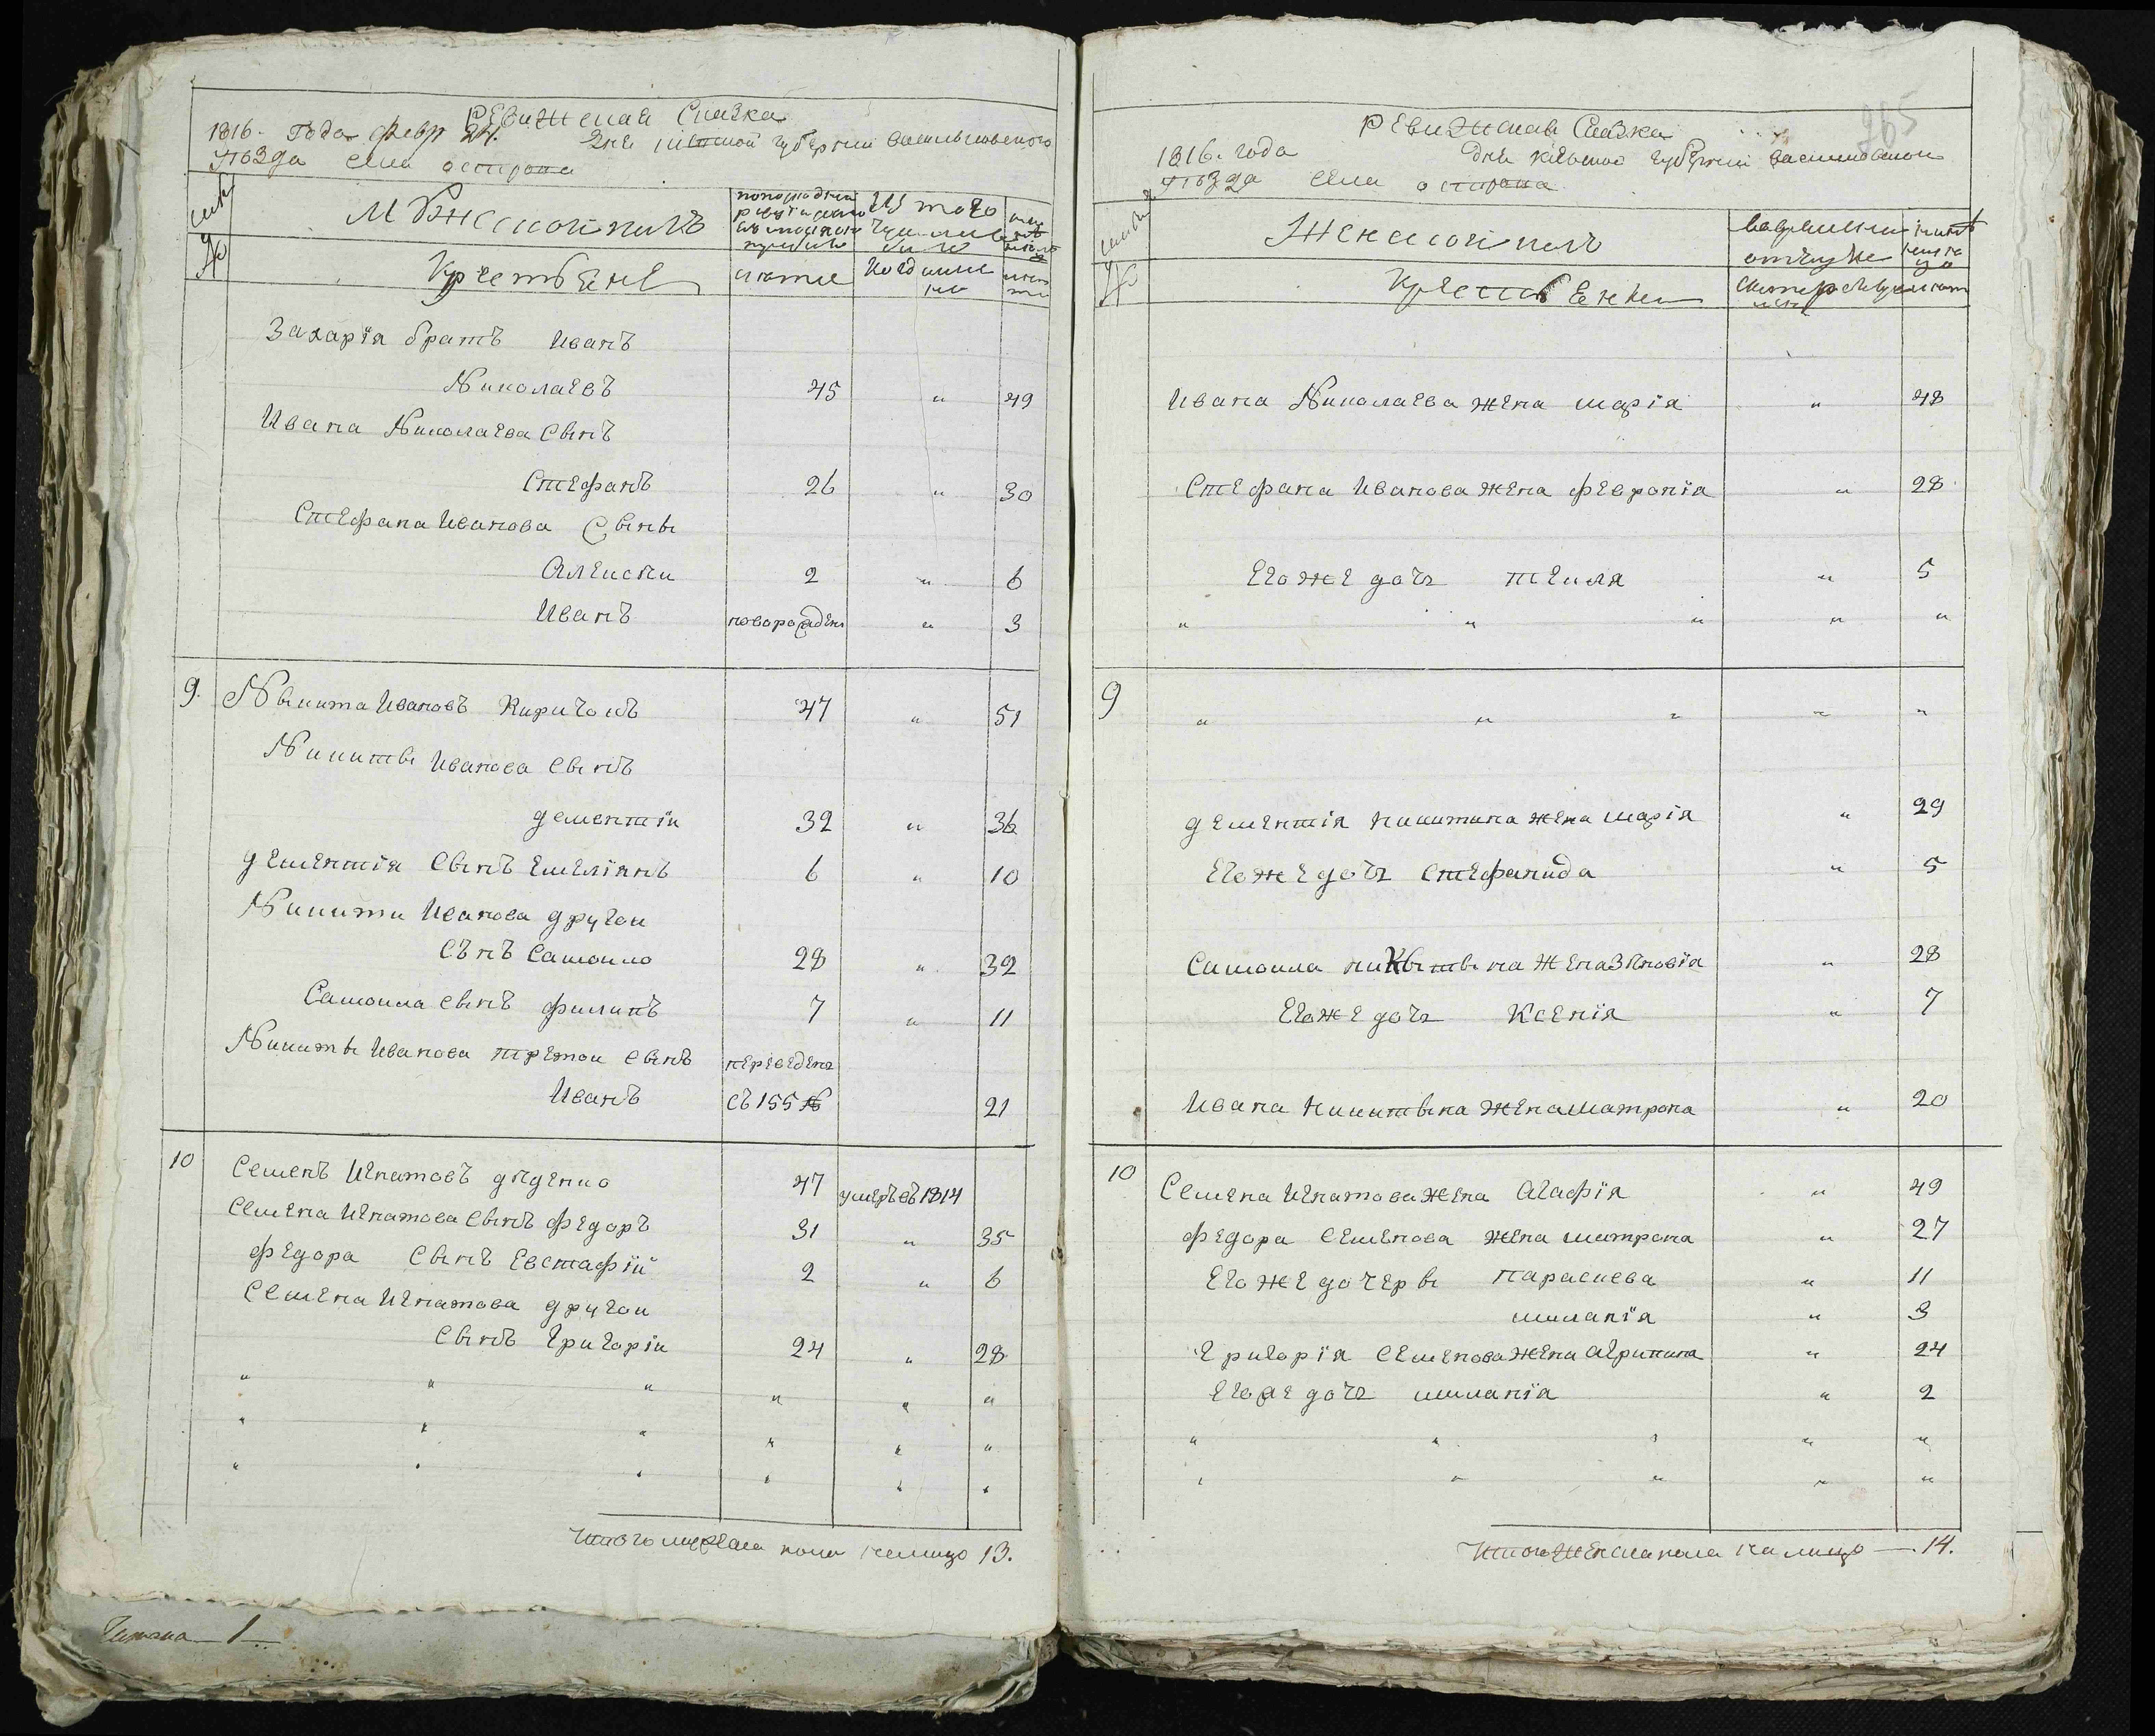 РЕвижская Сказка
1816. года февр 24. дня киевской губернии васильковского
уѣзда села острова
семьи
№
Мужеской полъ
по последней ревизии состояло и после оной прибыло
Из того числа выбыло
ныне на лицо
Крестьяне
лета
Когда именно
лета
Захарія братъ Иванъ
Николаевъ 45 " 49
Ивана Николаева Сынъ
Стефанъ 26 " 30
Стефана Иванова Сыны
Алексѣи 2 " 6
Иванъ новорожденъ " 3
9. Никита Ивановъ Киричокъ 47 " 51
Никиты Иванова сынъ
дементіи 32 " 36
дементія сынъ Емеліянъ 6 " 10
Никити Иванова другои
сънъ Самоило 28 " 32
Самоила сынъ филипъ 7 " 11
Никиты Иванова третои сынъ переведенъ
Иванъ съ 155 № 21
10 Семенъ Игнатовъ дяденко 47 умеръ въ 1814
Семена Игнатова сынъ федоръ 31 " 35
федора сынъ Евстафій 2 " 6
Семена Игнатова другои
сынъ григоріи 24 " 28
" " " " " "
" " " " " "
" " " " " "
Итого мужеска пола на лицо 13.
265
Ревижская Сказка
1816. года дня киевской губернии васильковской
уѣзда села острова
семьи
№
Женской полъ
во временной отлучке
ныне на лицо
Крестьянки
лета
Ивана Николаева жена марія " 48
Стефана Иванова жена февронія " 28
Его же дочь текля " 5
" " " " "
9 " " " " "
дементія никитина жена марія " 29
Его же дочь стефанида " 5
Самоила никытына жена Зѣновія " 28
Его же дочь Ксенія " 7
Ивана никитына жена матрона " 20
10 Семена Игнатова жена Агафія " 49
федора семенова жена матрона " 27
Его же дочеры параскева " 11
миланія " 3
григорія семенова жена агрипина " 24
Его же дочь миланія " 2
" " " " "
" " " " "
Итого женска пола на лицо — 14.